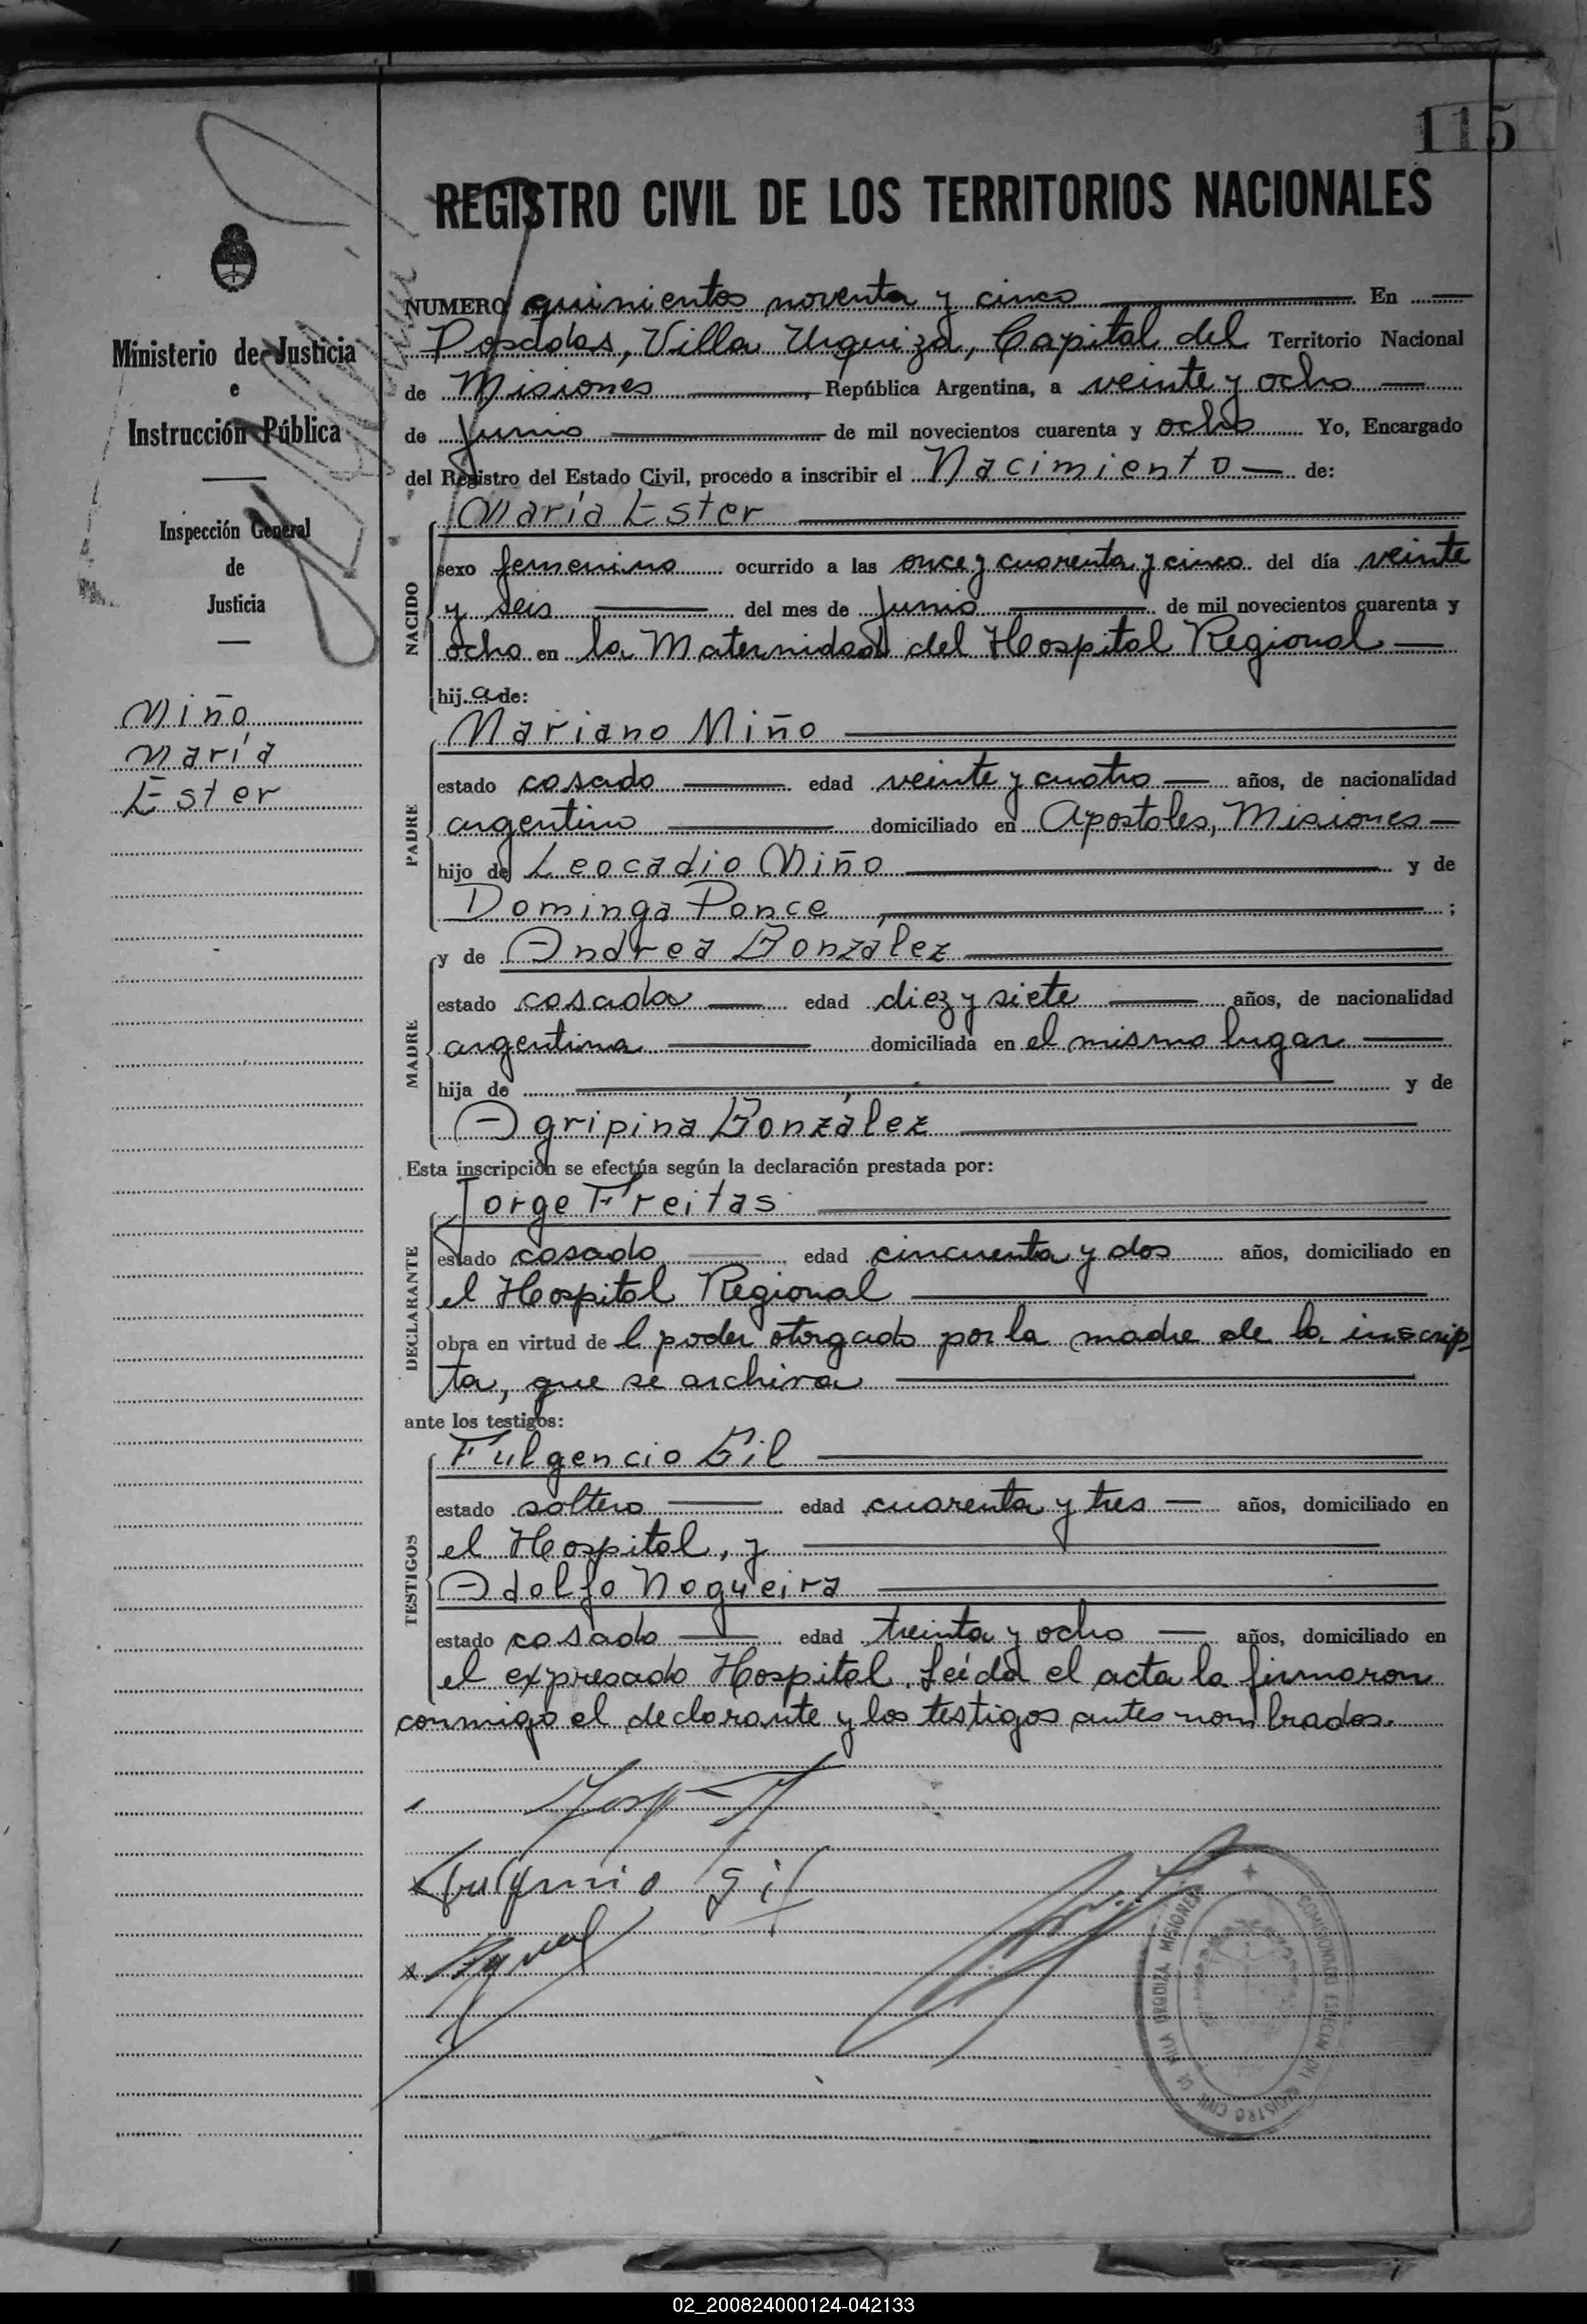 115
REGISTRO CIVIL DE LOS TERRITORIOS NACIONALES
Ministerio de Justicia
e
Instrucción Pública
Inspección General
de
Justicia
Miño
María
Ester
NUMERO quinientos noventa y cinco En
Posadas, Villa Urquiza, Capital del Territorio Nacional
de Misiones, República Argentina, a veinte y ocho
de Junio de mil novecientos cuarenta y ocho Yo, Encargado
del Registro del Estado Civil, procedo a inscribir el Nacimiento de:
NACIDO
María Ester
sexo femenino ocurrido a las once y cuarenta y cinco del día veinte
y seis del mes de Junio de mil novecientos cuarenta y
ocho en la Maternidad del Hospital Regional
hija de:
PADRE
Mariano Miño
estado casado edad veinte y cuatro años, de nacionalidad
argentino domiciliado en Apostoles, Misiones
hijo de Leocadio Miño y de
Dominga Ponce ;
MADRE
y de Andrea González
estado casada edad diez y siete años, de nacionalidad
argentina domiciliada en el mismo lugar
hija de y de
Agripina González
Esta inscripción se efectúa según la declaración prestada por:
DECLARANTE
Jorge Freitas
estado casado edad cincuenta y dos años, domiciliado en
el Hospital Regional
obra en virtud de l poder otorgado por la madre de la inscrip
ta, que se archiva
ante los testigos:
TESTIGOS
Fulgencio Gil
estado soltero edad cuarenta y tres años, domiciliado en
el Hospital, y
Adolfo Nogueira
estado casado edad treinta y ocho años, domiciliado en
el expresado Hospital. Leída el acta la firmaron
conmigo el declarante y los testigos antes nombrados.
Fulgencio Gil
COMISIONADO ESPECIAL DEL REGISTRO CIVIL
VILLA URQUIZA MISIONES
02_200824000124-042133